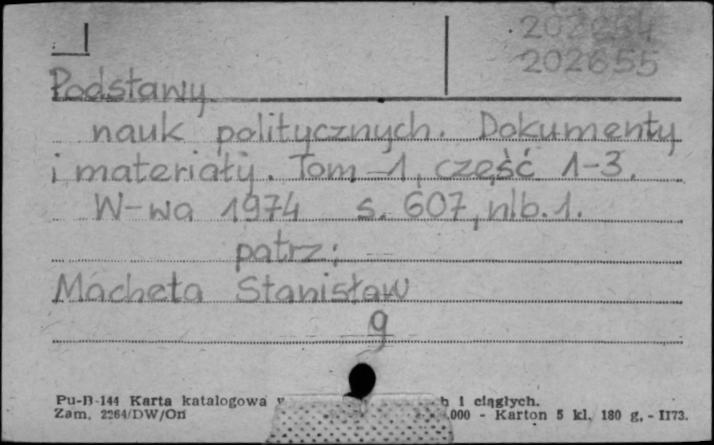 I
202654
202655
Podstawy
nauk politycznych. Dokumenty
i materiały. Tom 1, część 1-3.
W-wa 1974 s. 607, nlb. 1.
patrz:
Macheta Stanisław
9
Pu-B-144 Karta katalogowa i ciągłych.
Zam. 2264/DW/On 000 - Karton 5 kl. 180 g. - II73.